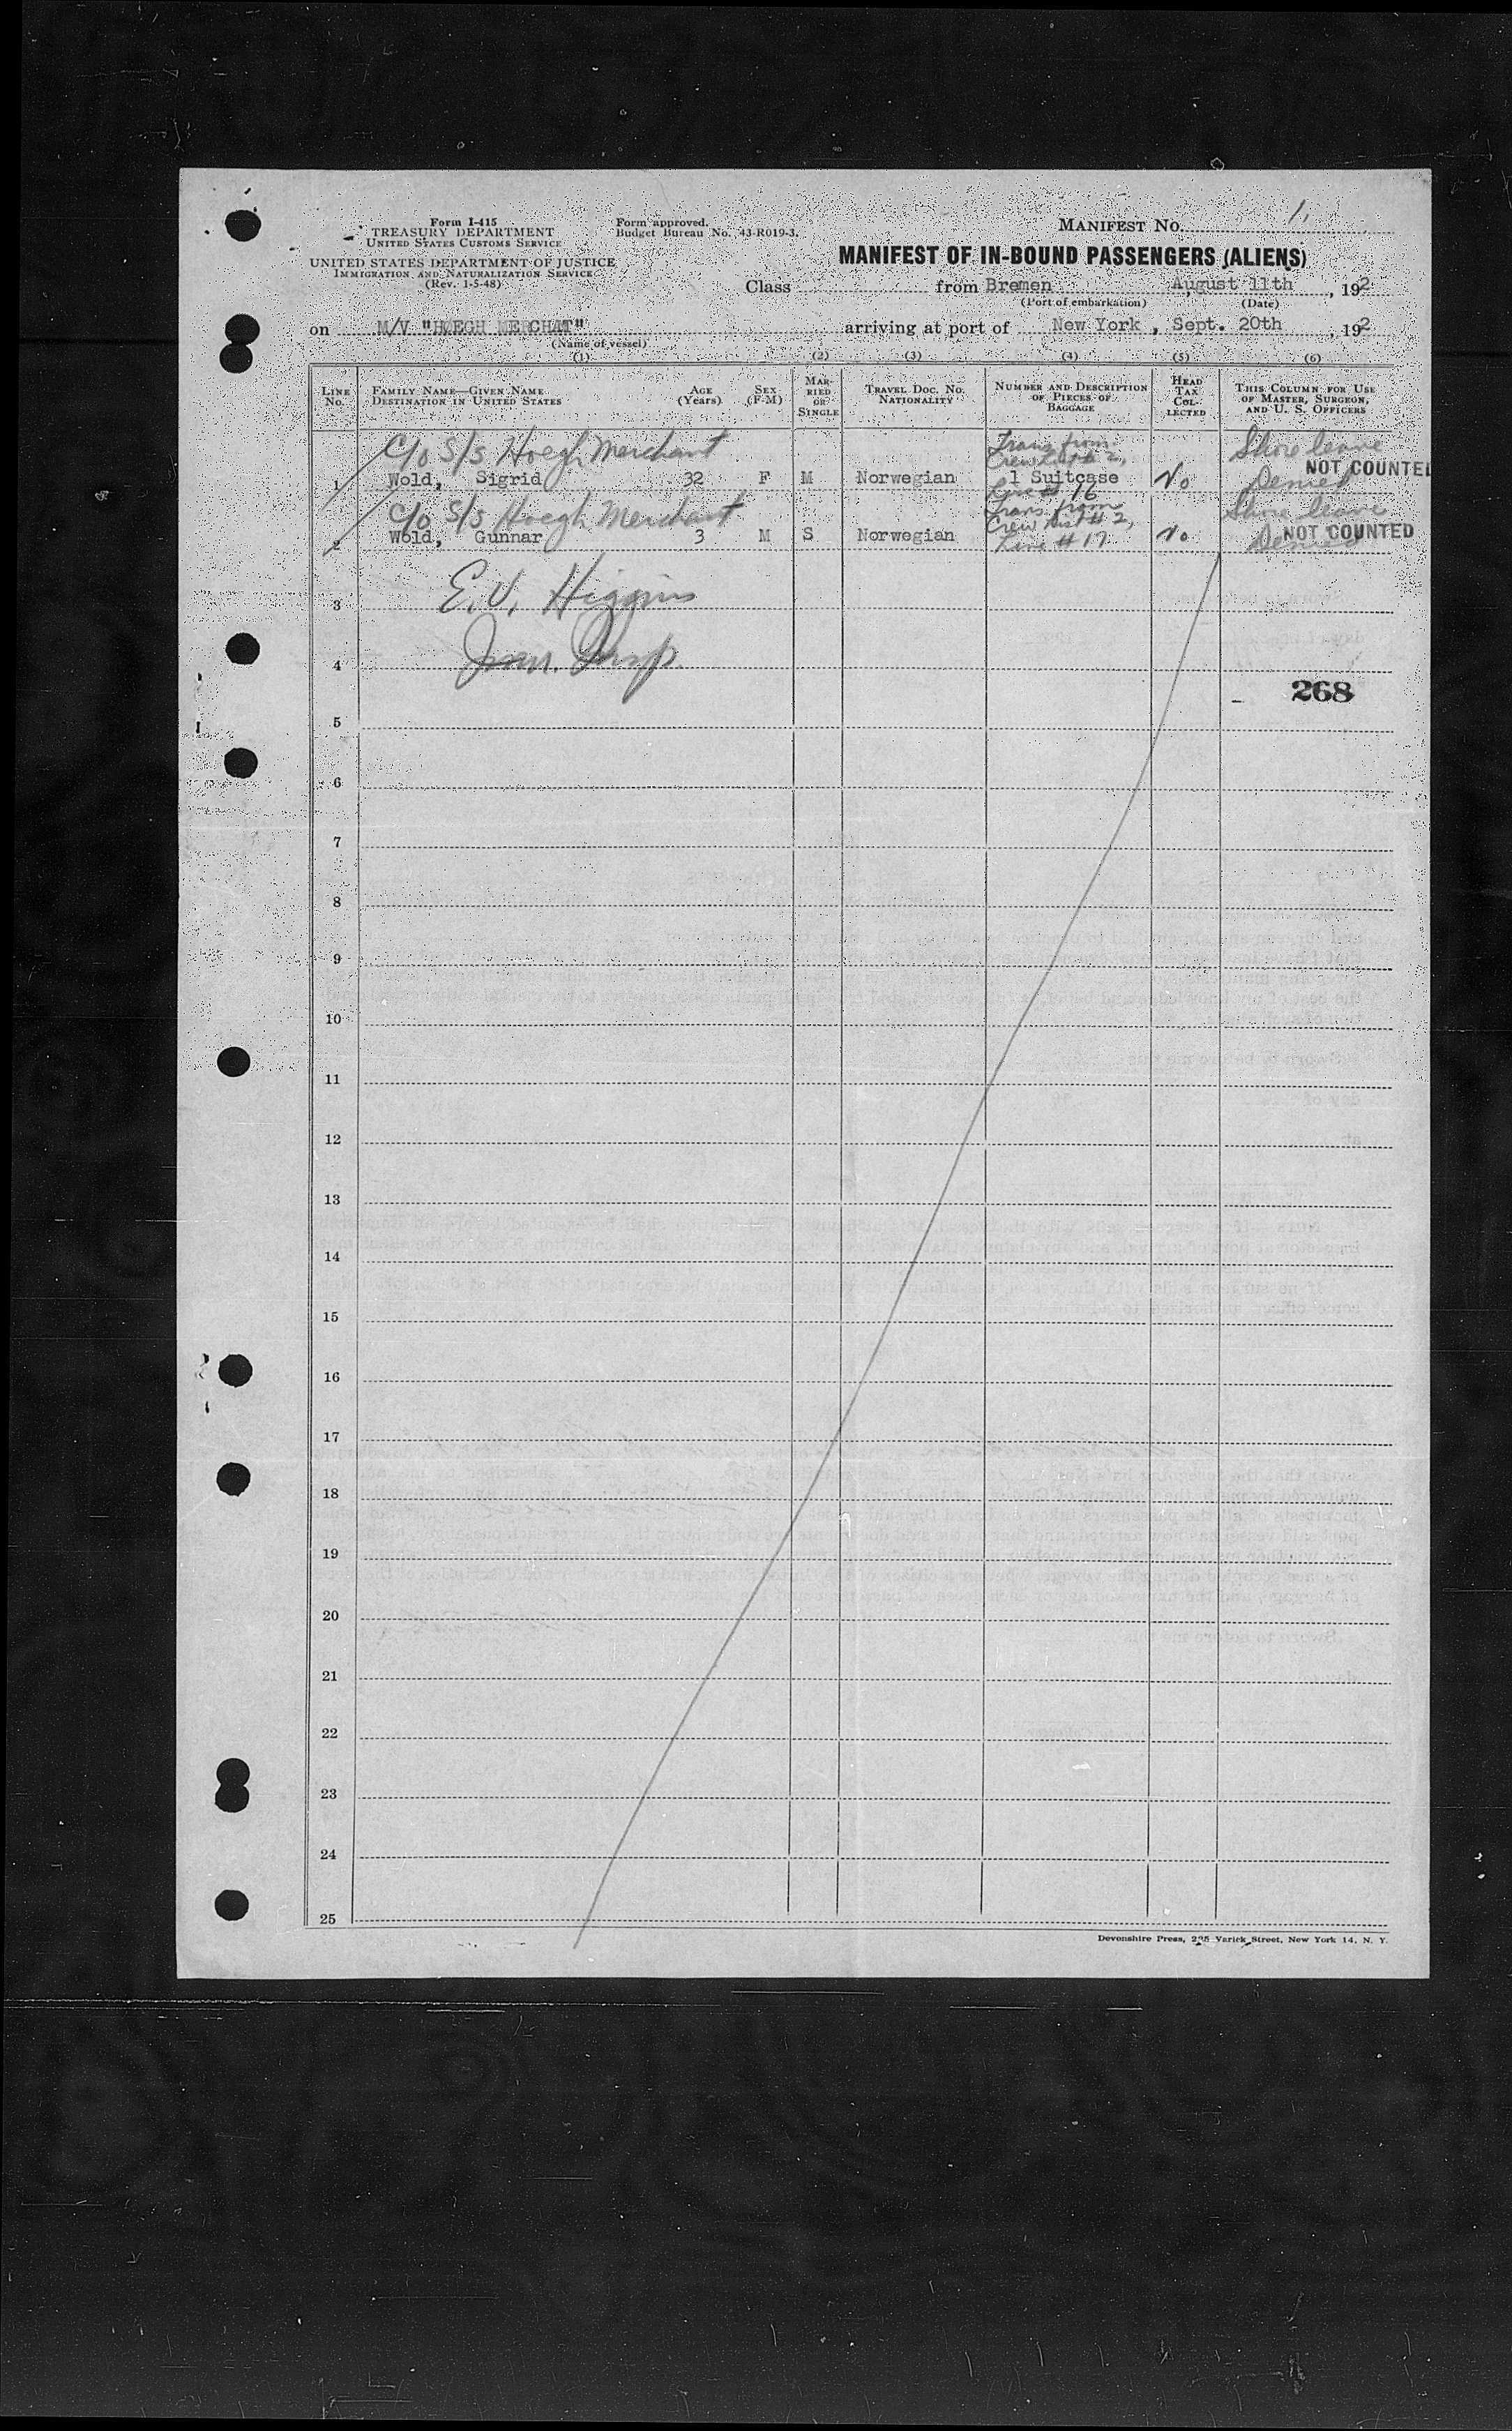 Form I-415
TREASURY DEPARTMENT
UNITED STATES CUSTOMS SERVICE
UNITED STATES DEPARTMENT OF JUSTICE
IMMIGRATION AND NATURALIZATION SERVICE
(Rev. 1-5-48)
Form approved.
Budget Bureau No. 43-R019-3.
MANIFEST No. 1.
MANIFEST OF IN-BOUND PASSENGERS (ALIENS)
Class from Bremen August 11th, 192
(Port of embarkation) (Date)
on M/V "HOEGH MERCHAT" arriving at port of New York, Sept. 20th, 192
(Name of vessel)
(1) (2) (3) (4) (5) (6)
LINE No. FAMILY NAME—GIVEN NAME DESTINATION IN UNITED STATES AGE (Years) SEX (F-M) MARRIED OR SINGLE TRAVEL DOC. NO. NATIONALITY NUMBER AND DESCRIPTION OF PIECES OF BAGGAGE HEAD TAX COLLECTED THIS COLUMN FOR USE OF MASTER, SURGEON, AND U. S. OFFICERS
C/o S/s Hoegh Merchant Trans from Crew List # 2, Shore leave
1 Wold, Sigrid 32 F M Norwegian 1 Suitcase No Denied NOT COUNTED
Line # 16
C/o S/s Hoegh Merchant Trans. from Crew List # 2, Shore leave
2 Wold, Gunnar 3 M S Norwegian Line # 17 No Denied NOT COUNTED
3 E.V. Higgins
4 Imm. Insp.
268
5
6
7
8
9
10
11
12
13
14
15
16
17
18
19
20
21
22
23
24
25
Devonshire Press, 225 Varick Street, New York 14, N. Y.